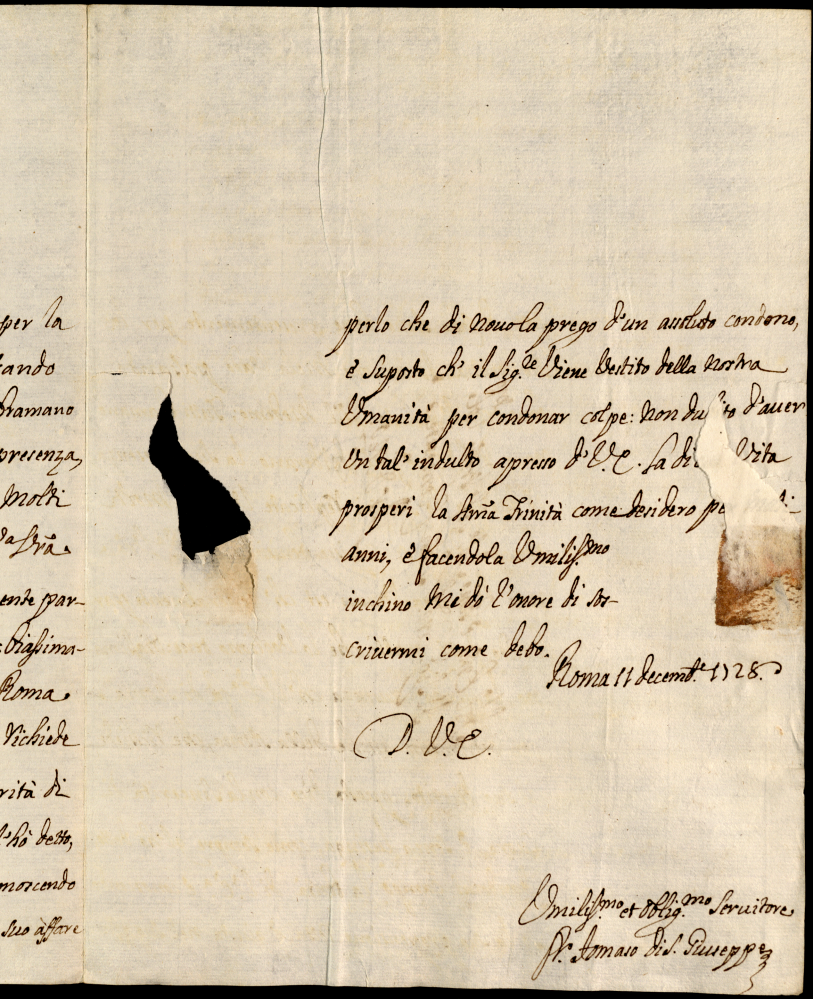 per la
tando
bramano
presenza,
Molti
V.a Srã.
ente par-
biassima-
Roma.
Richiede
rità di
l'hò detto,
moscendo
suo affare
perlo che di nouo la prego d'un assoluto condono,
è suposto ch' il Sig.re Viene Vestito della nostra
Vmanità per condonar colpe: non du ito d'auer
Vn tal' indulto apresso d'V.E. La di Vita
prosperi la Ssm̃a Trinità come desidero pe
anni, è facendola Vmiliss.mo
inchino Mi dó l'onore di sos-
criuermi come debo.
Roma 11 decemb.e 1728.
D. V.E.
Vmiliss.mo et oblig.mo Seruitore
fr. Tomaso di S. Giuseppe